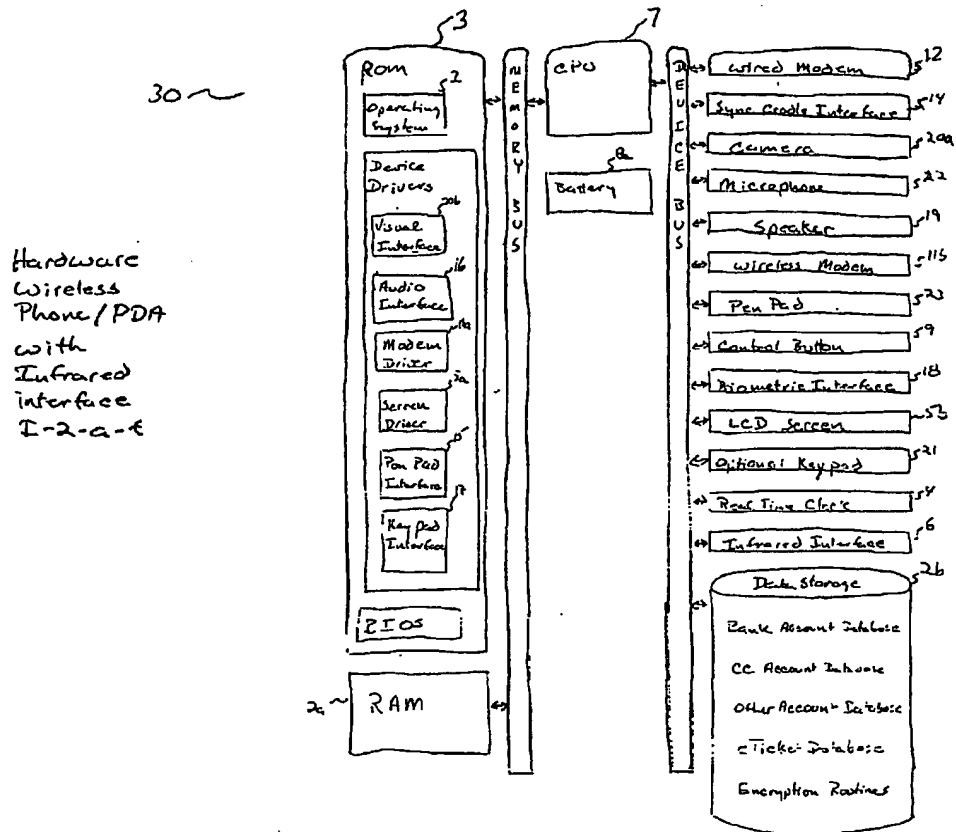 30
Hardware
Wireless
Phone/PDA
with
Infrared
interface
I-2-a-t
3
ROM
2
Operating
System
Device
Drivers
20b
Visual
Interface
16
Audio
Interface
11a
Modem
Driver
5a
Screen
Driver
15
Pen Pad
Interface
17
Keypad
Interface
BIOS
2a
RAM
MEMORY BUS
7
CPU
8a
Battery
DEVICE BUS
Wired Modem
12
Sync Cradle Interface
14
Camera
20a
Microphone
22
Speaker
19
Wireless Modem
11b
Pen Pad
23
Control Button
9
Biometric Interface
18
LCD Screen
5b
Optional Keypad
21
Real Time Clock
4
Infrared Interface
6
Data Storage
26
Bank Account Database
CC Account Database
Other Account Database
eTicket Database
Encryption Routines